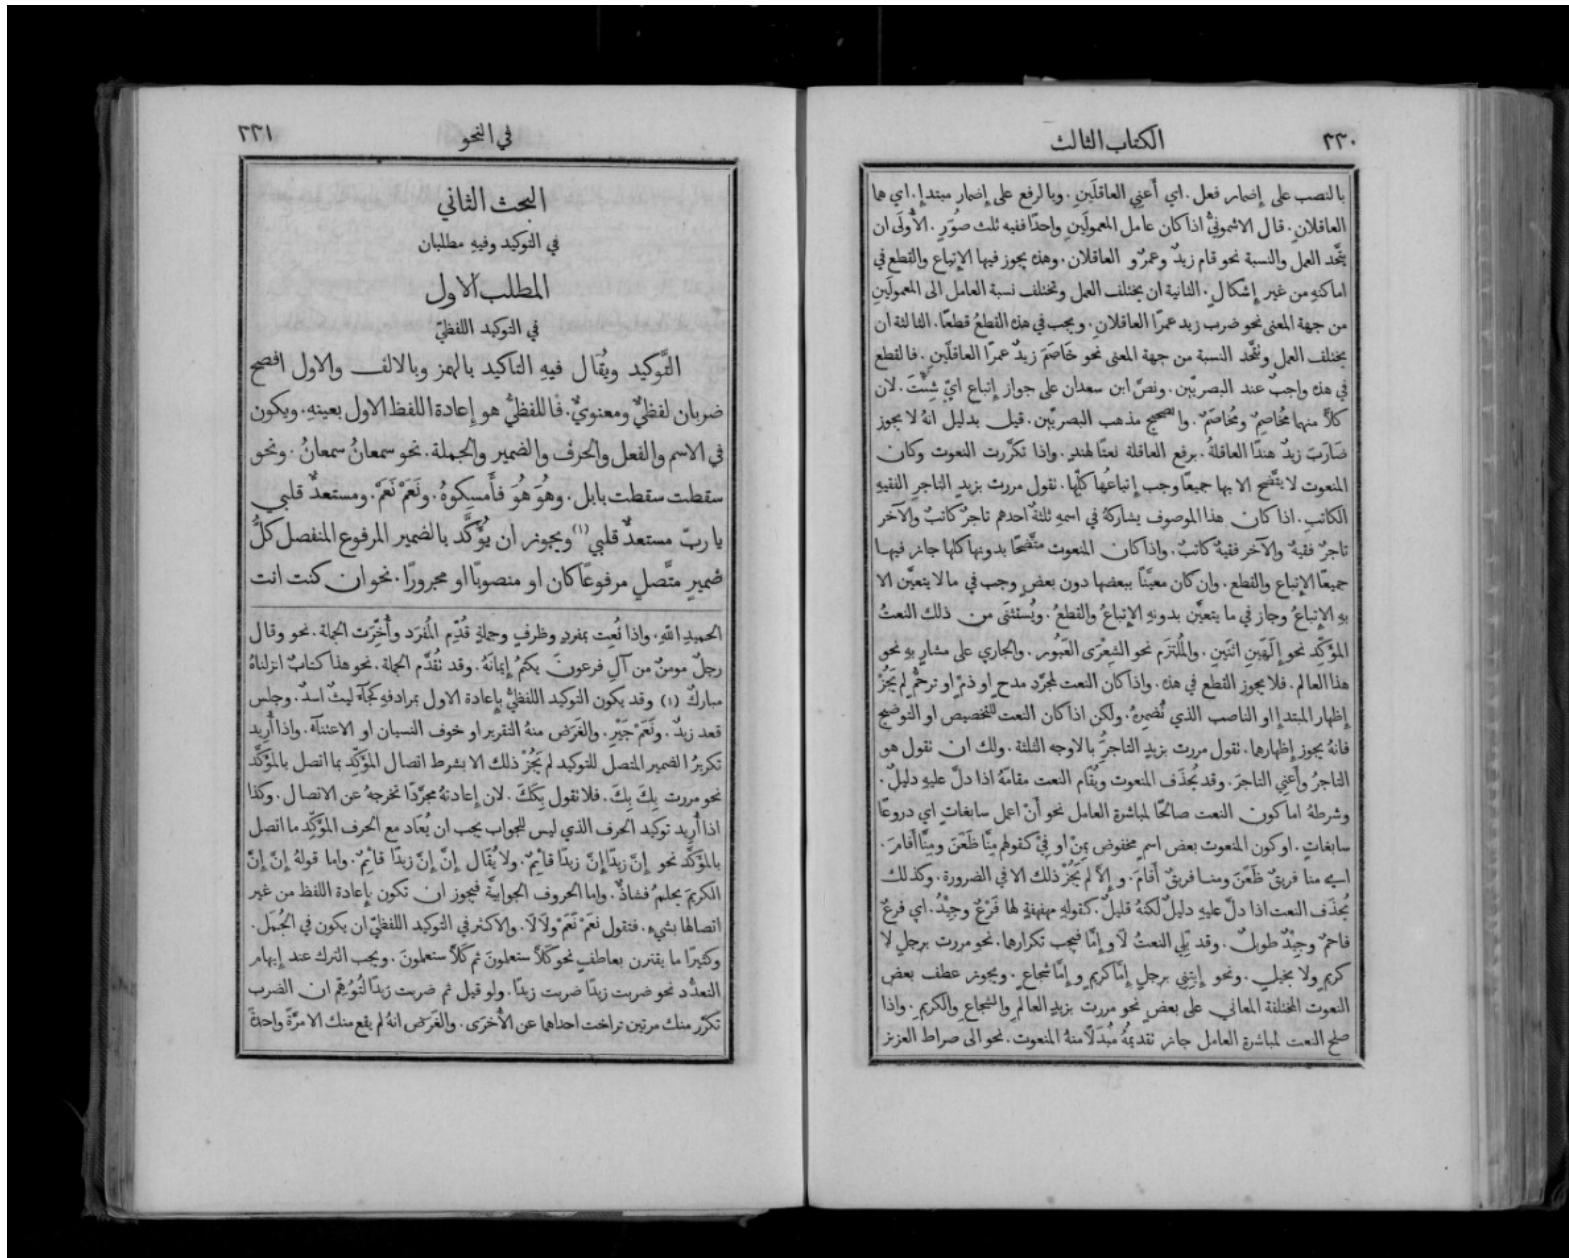 ٣٣٠
الكتاب الثالث
بالنصب على إضمار فعل. اي أَعني العاقلَينِ. وبالرفع على إضمار مبتدإٍ. اي هما
العاقلانِ. قال الاشمونيُّ اذا كان عامل المعمولَينِ واحدًا ففيه ثلث صُوَرٍ. الأُولَى ان
يتَّحد العمل والنسبة نحو قام زيدٌ وعمرٌو العاقلان. وهذه يجوز فيها الإتباع والقطع في
اماكنهِ من غير إشكالٍ. الثانية ان يختلف العمل وتختلف نسبة العامل الى المعمولَينِ
من جهة المعنى نحو ضرب زيد عمرًا العاقلانِ. ويجب في هذه القطعُ قطعًا. الثالثة ان
يختلف العمل وتتَّحد النسبة من جهة المعنى نحو خَاصَمَ زيدٌ عمرًا العاقلَينِ. فالقطع
في هذه واجبٌ عند البصريّين. ونصَّ ابن سعدان على جواز إتباع ايٍّ شِئتَ. لان
كلًّا منهما مُخَاصِمٌ ومُخَاصَمٌ. والصحيح مذهب البصريّين. قيل بدليل انهُ لا يجوز
ضَارَبَ زيدٌ هندًا العاقلةُ. برفع العاقلة نعتًا لهندٍ. واذا تكرَّرت النعوت وكان
المنعوت لا يتَّضح الا بها جميعًا وجب إتباعُها كلِّها. نقول مررت بزيدٍ التاجرِ الفقيهِ
الكاتبِ. اذا كان هذا الموصوف يشاركهُ في اسمهِ ثلثةٌ احدهم تاجرٌ كاتبٌ والآخر
تاجرٌ فقيهٌ والآخر فقيهٌ كاتبٌ. واذا كان المنعوت متَّضحًا بدونها كلها جاز فيها
جميعًا الإتباع والقطع. وان كان معيَّنًا ببعضها دون بعضٍ وجب في ما لا يتعيَّن الا
بهِ الإتباعُ وجاز في ما يتعيَّن بدونهِ الإتباعُ والقطعُ. ويُستثنَى من ذلك النعتُ
المؤكِّد نحو إِلَهَينِ اثنَينِ. والمُلتزَم نحو الشِعرَى العَبُور. والجاري على مشارٍ بهِ نحو
هذا العالم. فلا يجوز القطع في هذه. واذا كان النعت لمجرَّد مدحٍ او ذمٍّ او ترحُّمٍ لم يَجُزْ
إظهار المبتدإِ او الناصب الذي تُضمِرهُ. ولكن اذا كان النعت للتخصيص او التوضيح
فانهُ يجوز إظهارها. نقول مررت بزيدٍ التاجرُِ بالاوجه الثلثة. ولك ان نقول هو
التاجرُ وأَعني التاجرَ. وقد يُحذَف المنعوت ويُقَام النعت مقامَهُ اذا دلَّ عليهِ دليلٌ.
وشرطهُ اما كون النعت صالحًا لمباشرة العامل نحو أَنْ اعمل سابغاتٍ اي دروعًا
سابغاتٍ. او كون المنعوت بعض اسمٍ مخفوض بمِنْ او فِيْ كقولهم مِنَّا ظَعَنَ ومِنَّا أَقامَ.
اي منا فريقٌ ظَعَنَ ومنا فريقٌ أَقامَ. وإلاَّ لم يَجُزْ ذلك الا في الضرورة. وكذلك
يُحذَف النعت اذا دلَّ عليهِ دليلٌ لكنهُ قليلٌ. كقولهِ مهفهفةٍ لها فَرْعٌ وجِيْدُ. اي فرعٌ
فاحمٌ وجِيْدٌ طويلٌ. وقد يَلِي النعتُ لَا وإمَّا فيجب تكرارها. نحو مررت برجلٍ لا
كريمٍ ولا بخيلٍ. ونحو إيتِنِي برجلٍ إمَّا كريمٍ وإمَّا شجاعٍ. ويجوز عطف بعض
النعوت المختلفة المعاني على بعضٍ نحو مررت بزيدٍ العالمِ والشجاعِ والكريمِ. واذا
صلح النعت لمباشرة العامل جاز تقديمُهُ مُبدَلًا منهُ المنعوت. نحو الى صراط العزيز
في النحو
٣٣١
البحث الثاني
في التوكيد وفيهِ مطلبان
المطلب الاول
في التوكيد اللفظيّ
التَّوكيد ويُقَال فيهِ التاكيد بالهمز وبالالف والاول افصح
ضربان لفظيٌّ ومعنويٌّ. فاللفظيُّ هو إعادة اللفظ الاول بعينهِ. ويكون
في الاسم والفعل والحرف والضمير والجملة. نحو سمعانُ سمعانُ. ونحو
سقطت سقطت بابل. وهُوَ هُوَ فَأَمسِكوهُ. ونَعَمْ نَعَمْ. ومستعدٌّ قلبي
يا ربّ مستعدٌّ قلبي (١) ويجوز ان يُؤَكَّد بالضمير المرفوع المنفصل كلُّ
ضميرٍ متَّصلٍ مرفوعًا كان او منصوبًا او مجرورًا. نحو ان كنت انت
الحميدِ اللهِ. واذا نُعِت بمفردٍ وظرفٍ وجملةٍ قُدِّم المُفرَد وأُخِّرَت الجملة. نحو وقال
رجلٌ مومنٌ من آلِ فرعونَ يكتمُ إيمانَهُ. وقد نقُدَّم الجملة. نحو هذا كتابٌ انزلناهُ
مباركٌ (١) وقد يكون التوكيد اللفظيُّ بإعادة الاول بمرادفهِ كجَآءَ ليثٌ اسدٌ. وجلس
قعد زيدٌ. ونَعَمْ جَيْرِ. والغَرَض منهُ التقرير او خوف النسيان او الاعتنآء. واذا أُرِيد
تكريرُ الضمير المتصل للتوكيد لم يَجُزْ ذلك الا بشرط اتصال المؤَكِّد بما اتصل بالمؤَكَّد
نحو مررت بِكَ بِكَ. فلا نقول بِكَكَ. لان إعادتهُ مجرَّدًا تخرجهُ عن الاتصال. وكذا
اذا أُرِيد توكيد الحرف الذي ليس للجواب يجب ان يُعَاد مع الحرف المؤَكِّد ما اتصل
بالمؤَكَّد نحو إنَّ زيدًا إنَّ زيدًا قائِمٌ. ولا يُقَال إنَّ إنَّ زيدًا قائِمٌ. واما قولهُ إنَّ إنَّ
الكريمَ يحلمُ فشاذٌّ. واما الحروف الجوابيةُ فيجوز ان تكون بإعادة اللفظ من غير
اتصالها بشيءٍ. فتقول نعَمْ نَعَمْ ولَا لَا. والاكثر في التوكيد اللفظيّ ان يكون في الجُمَل.
وكثيرًا ما يقترن بعاطفٍ نحو كلَّا ستعلمونَ ثم كلَّا ستعلمونَ. ويجب الترك عند إبهام
التعدُّد نحو ضربت زيدًا ضربت زيدًا. ولو قيل ثم ضربت زيدًا لتُوُهِّم ان الضرب
تكرَّر منك مرتين تراخت احداهما عن الأُخرَى. والغَرَض انهُ لم يقع منك الا مرَّةً واحدةً